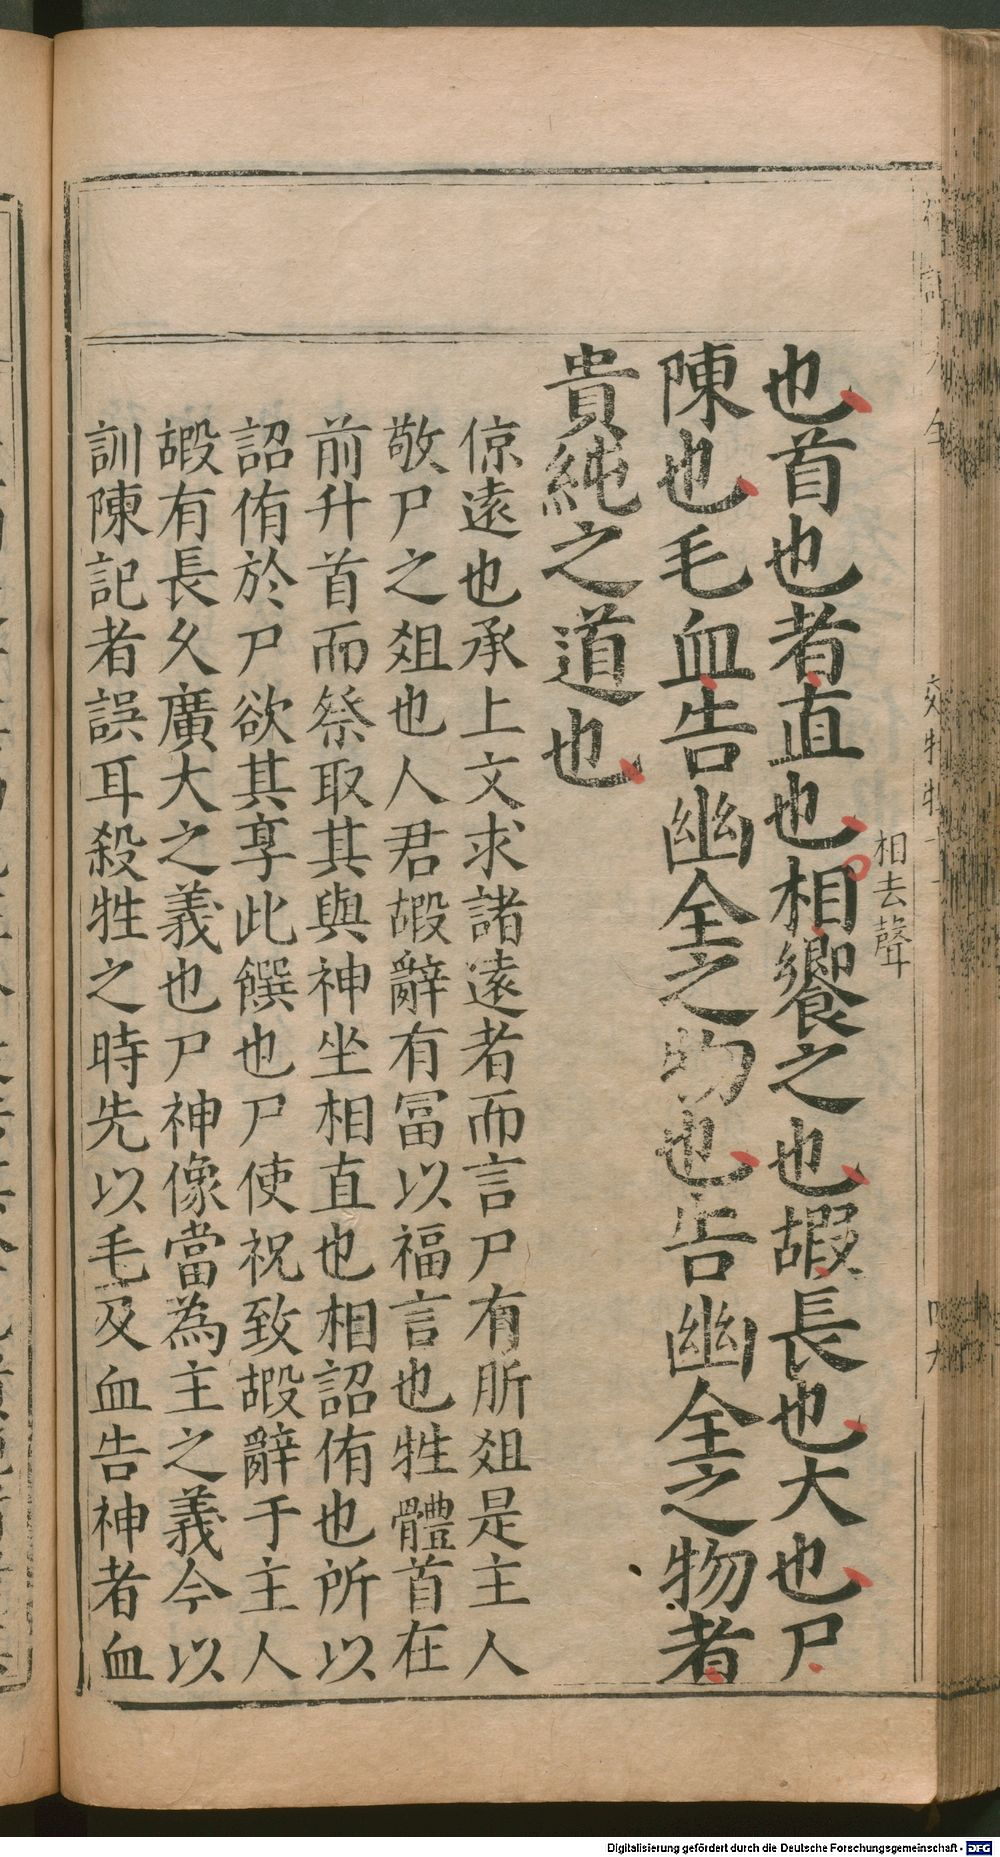 也首也者直也相饗之也嘏長也大也尸
相去聲
陳也毛血告幽全之物也告幽全之物者
貴純之道也
倞遠也承上文求諸遠者而言尸有肵俎是主人
敬尸之俎也人君嘏辭有冨以福言也牲體首在
前升首而祭取其與神坐相直也相詔侑也所以
詔侑於尸欲其享此饌也尸使祝致嘏辭于主人
嘏有長久廣大之義也尸神像當為主之義今以
訓陳記者誤耳殺牲之時先以毛及血告神者血
Digitalisierung gefördert durch die Deutsche Forschungsgemeinschaft - DFG